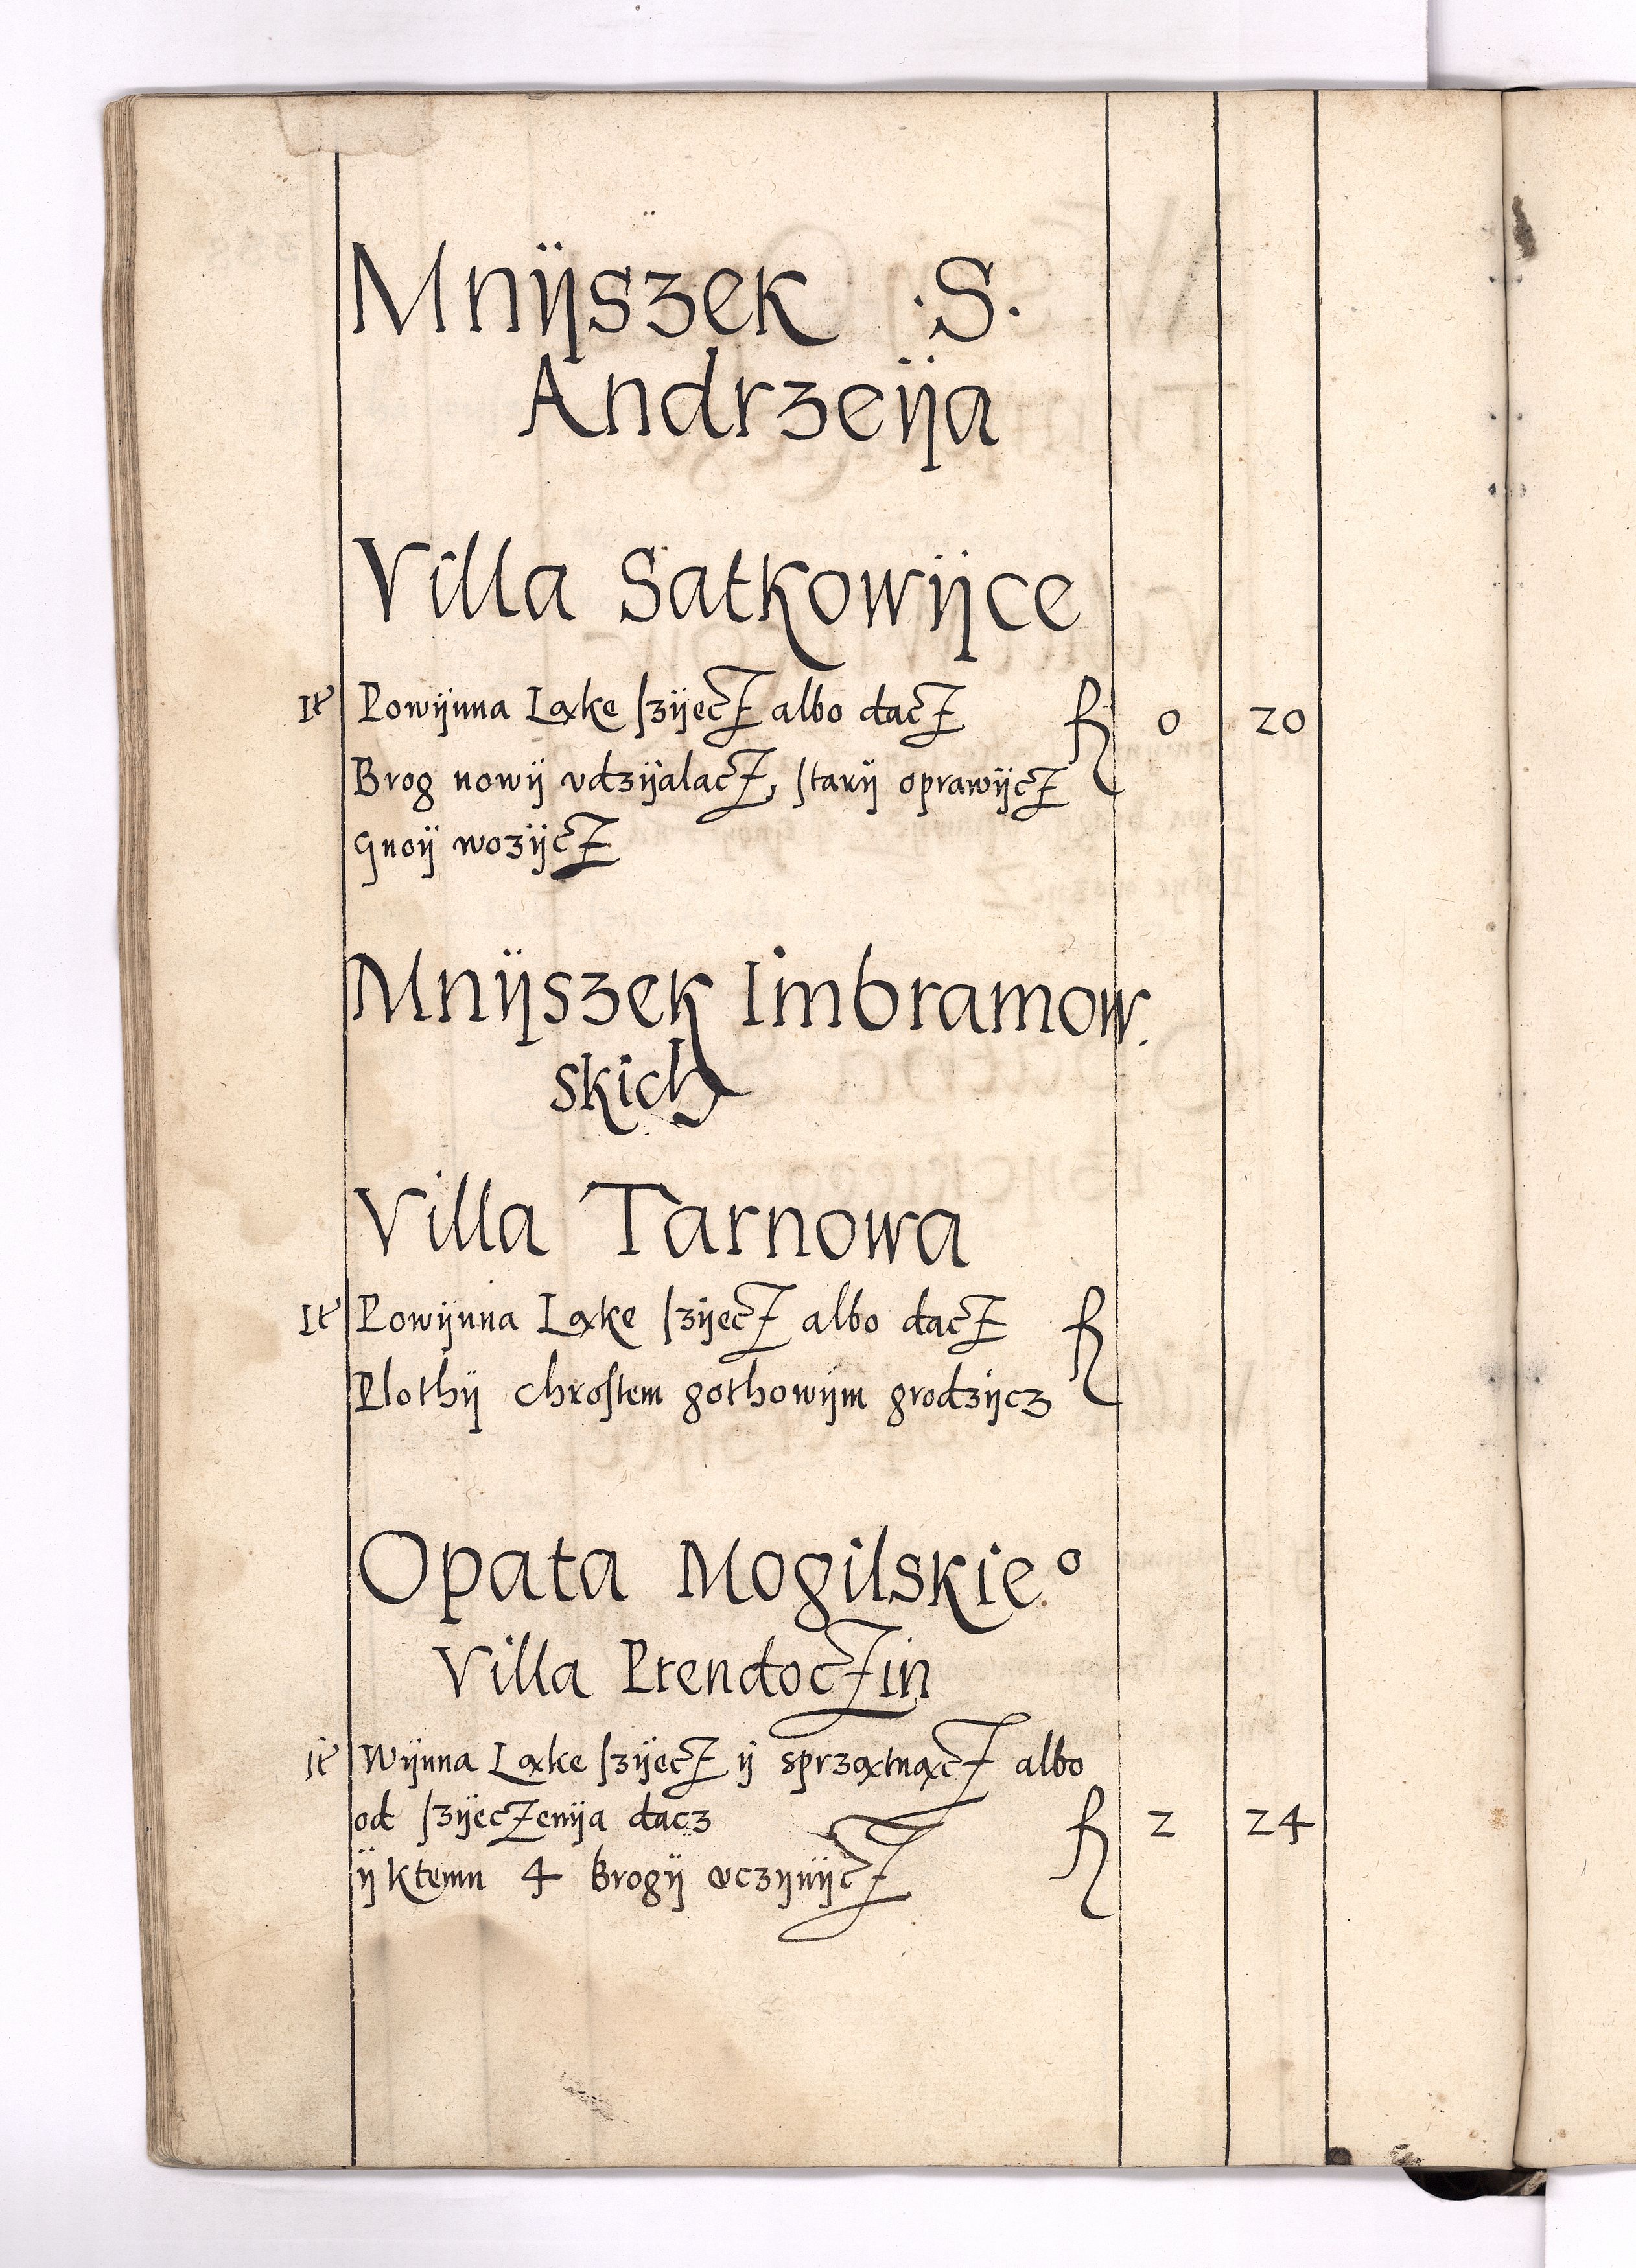 Mnÿszek .S.
Andrzeÿa
Villa Satkowÿce
It Powÿnna Ląke szÿecz albo dacz fl 0 20
Brog nowÿ vdzÿalacz, starÿ oprawÿcz
Gnoÿ wozÿcz
Mnÿszek Imbramow.
skich
Villa Tarnowa
It Powÿnna Ląke szÿecz albo dacz fl
Plothÿ chrostem gothowÿm grodzÿcz
Opata Mogilskie.º
Villa Prendoczin
it Wÿnna Ląke szÿecz ÿ sprzątnącz albo
od szÿeczenÿa dacz fl 2 24
ÿ ktemu 4 Brogÿ vczÿnÿcz